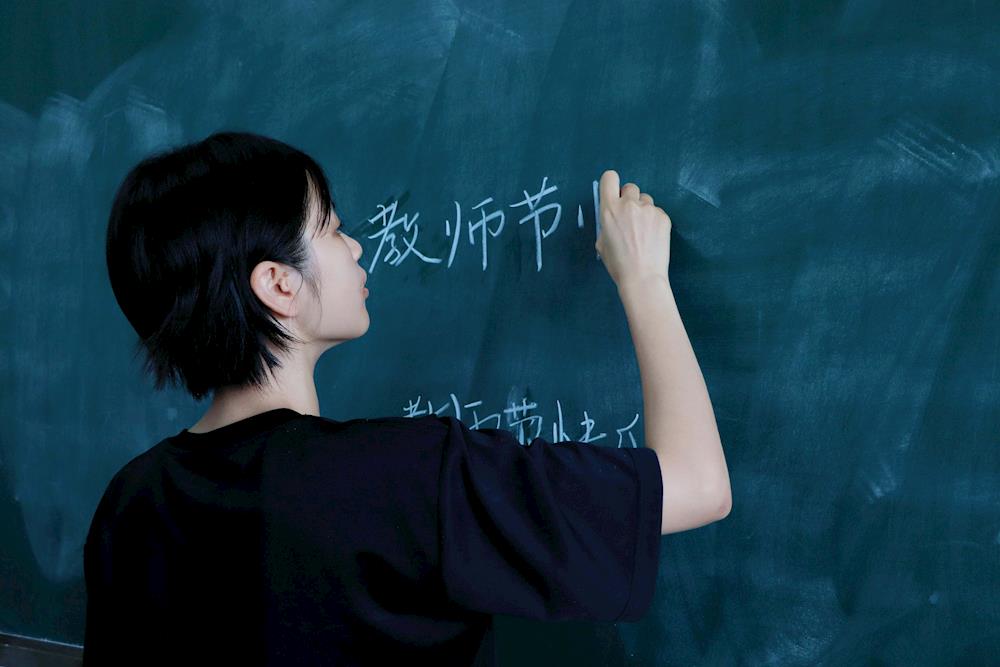 教师节
教师节快乐